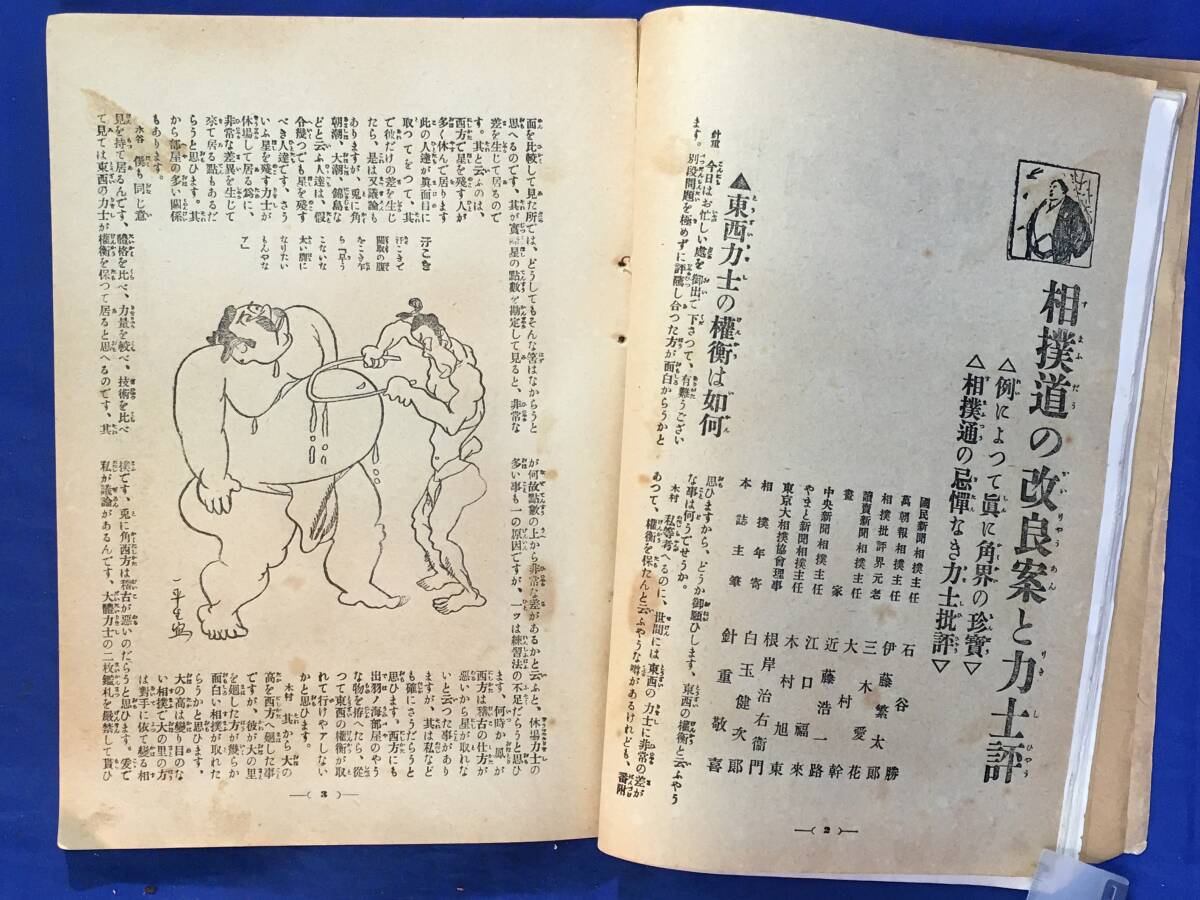 相撲道の改良案と力士評
△例によつて眞に角界の珍寶▽
△相撲通の忌憚なき力士批評▽
國民新聞相撲主任 石谷勝
萬朝報相撲主任 伊藤繁太郎
相撲批評界元老 三木愛花
讀賣新聞相撲主任 大村幹
畫家 近藤浩一路
中央新聞相撲主任 江口福來
やまと新聞相撲主任 木村旭東
東京大相撲協會理事 根岸治右衞門
相撲年寄 白玉健次郎
本誌主筆 針重敬喜
▲東西力士の權衡は如何
針重 今日はお忙しい處を御出で下さつて、有難うござい
ます。別段問題を極めずに評隲し合つた方が面白からうかと
思ひますから、どうか御願ひします、東西の權衡と云ふやう
な事は何うでせうか。
木村 私等考へるのに、世間には東西の力士に非常の差が
あつて、權衡を保たんと云ふやうな噂があるけれども、番附
—( 2 )—
面を比較して見た所では、どうしてもそんな筈はなからうと
思へるのです、其が實際星の點數を勘定して見ると、非常な
差を生じて居るので
す。其と云ふのは、
西方で星を殘す人が
多く休んで居ります
此の人達が眞面目に
取つてをつて、其
で彼だけの差を生じ
たら、是は又議論も
ありますが、兎に角
朝潮、大潮、錦島な
どと云ふ人達は、假
令幾つでも星を殘す
べき人達です、さう
いふ星を殘す力士が
休場して居る爲に、
非常な差異を生じて
來て居る點もあるだ
らうと思ひます。其
から部屋の多い關係
もあります。
水谷 僕も同じ意
見を持て居るんです、體格を比べ、力量を較べ、技術を比べ
て見ては東西の力士が權衡を保つて居ると思へるのです、其
汗こき
汗こきで
關取の腹
をこき乍
ら「早う
こないな
太い腹に
なりたい
もんやな
ア」
一平生画
が何故點數の上から非常な差があるかと云ふと、休場力士の
多い事も一の原因ですが、一ツは練習法の不足だらうと思ひ
ます、何時か鳳が
西方は稽古の仕方が
惡いから星が取れな
いと云つた事があり
ますが、其は私など
も確にさうだらうと
思ひます、西方にも
出羽ノ海部屋のやう
な物を拵へたら、從
つて東西の權衡が取
れて行けやアしない
かと思ひます。
木村 其から大の
高を西方へ廻した事
ですが、彼が大の里
を廻した方が幾らか
面白い相撲が取れた
らうかと思ひます、
大の高は變り目のな
い相撲で大の里の方
は對手に依て變る相
撲です、兎に角西方は稽古が惡いのだらうと思ひます。爰で
私が議論があるんです、大體力士の二枚鑑札を嚴禁して貰ひ
—( 3 )—